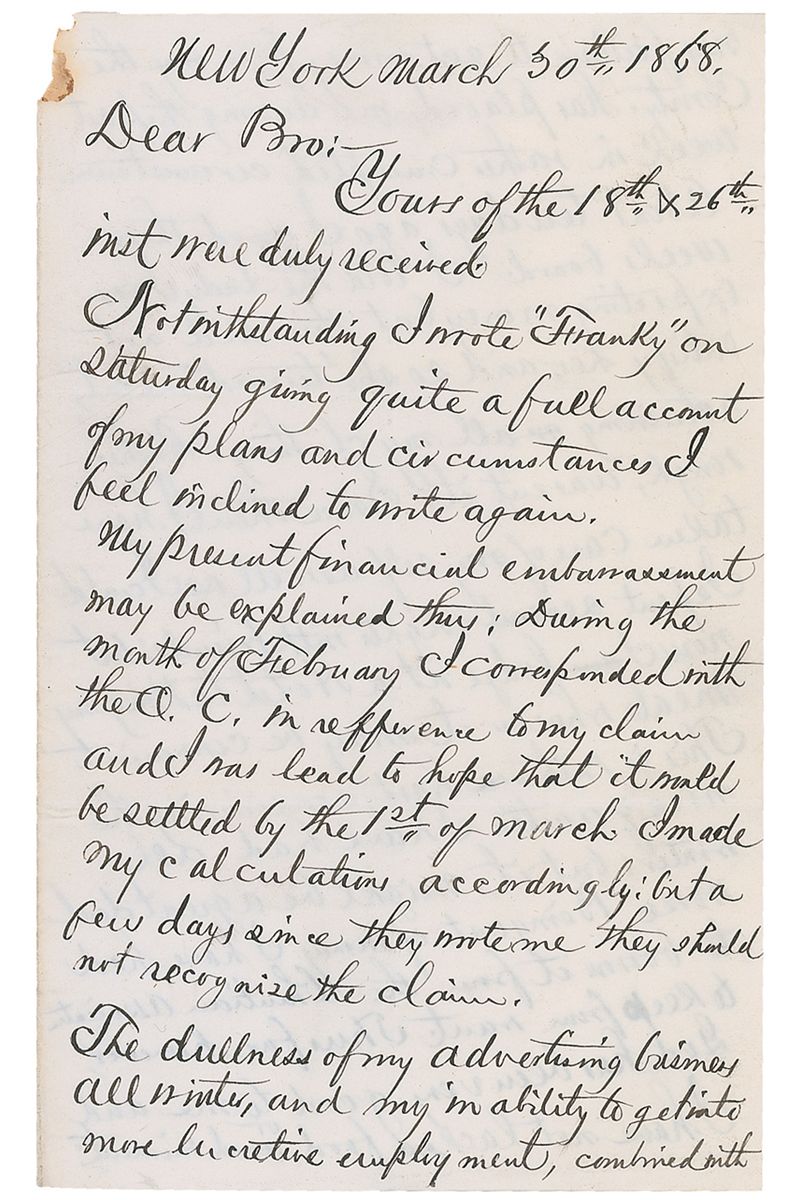 New York March 30th 1868.
Dear Bro:—
Yours of the 18th & 26th
inst were duly received.
Notwithstanding I wrote "Franky" on
Saturday giving quite a full account
of my plans and circumstances I
feel inclined to write again.
My present financial embarrassment
may be explained thus; During the
month of February I corresponded with
the O. C. in refference to my claim
and I was lead to hope that it would
be settled by the 1st of march. I made
my calculations accordingly: but a
few days since they wrote me they should
not recognize the claim.
The dullness of my advertising business
all winter, and my inability to get into
more lucretive employment, combined with